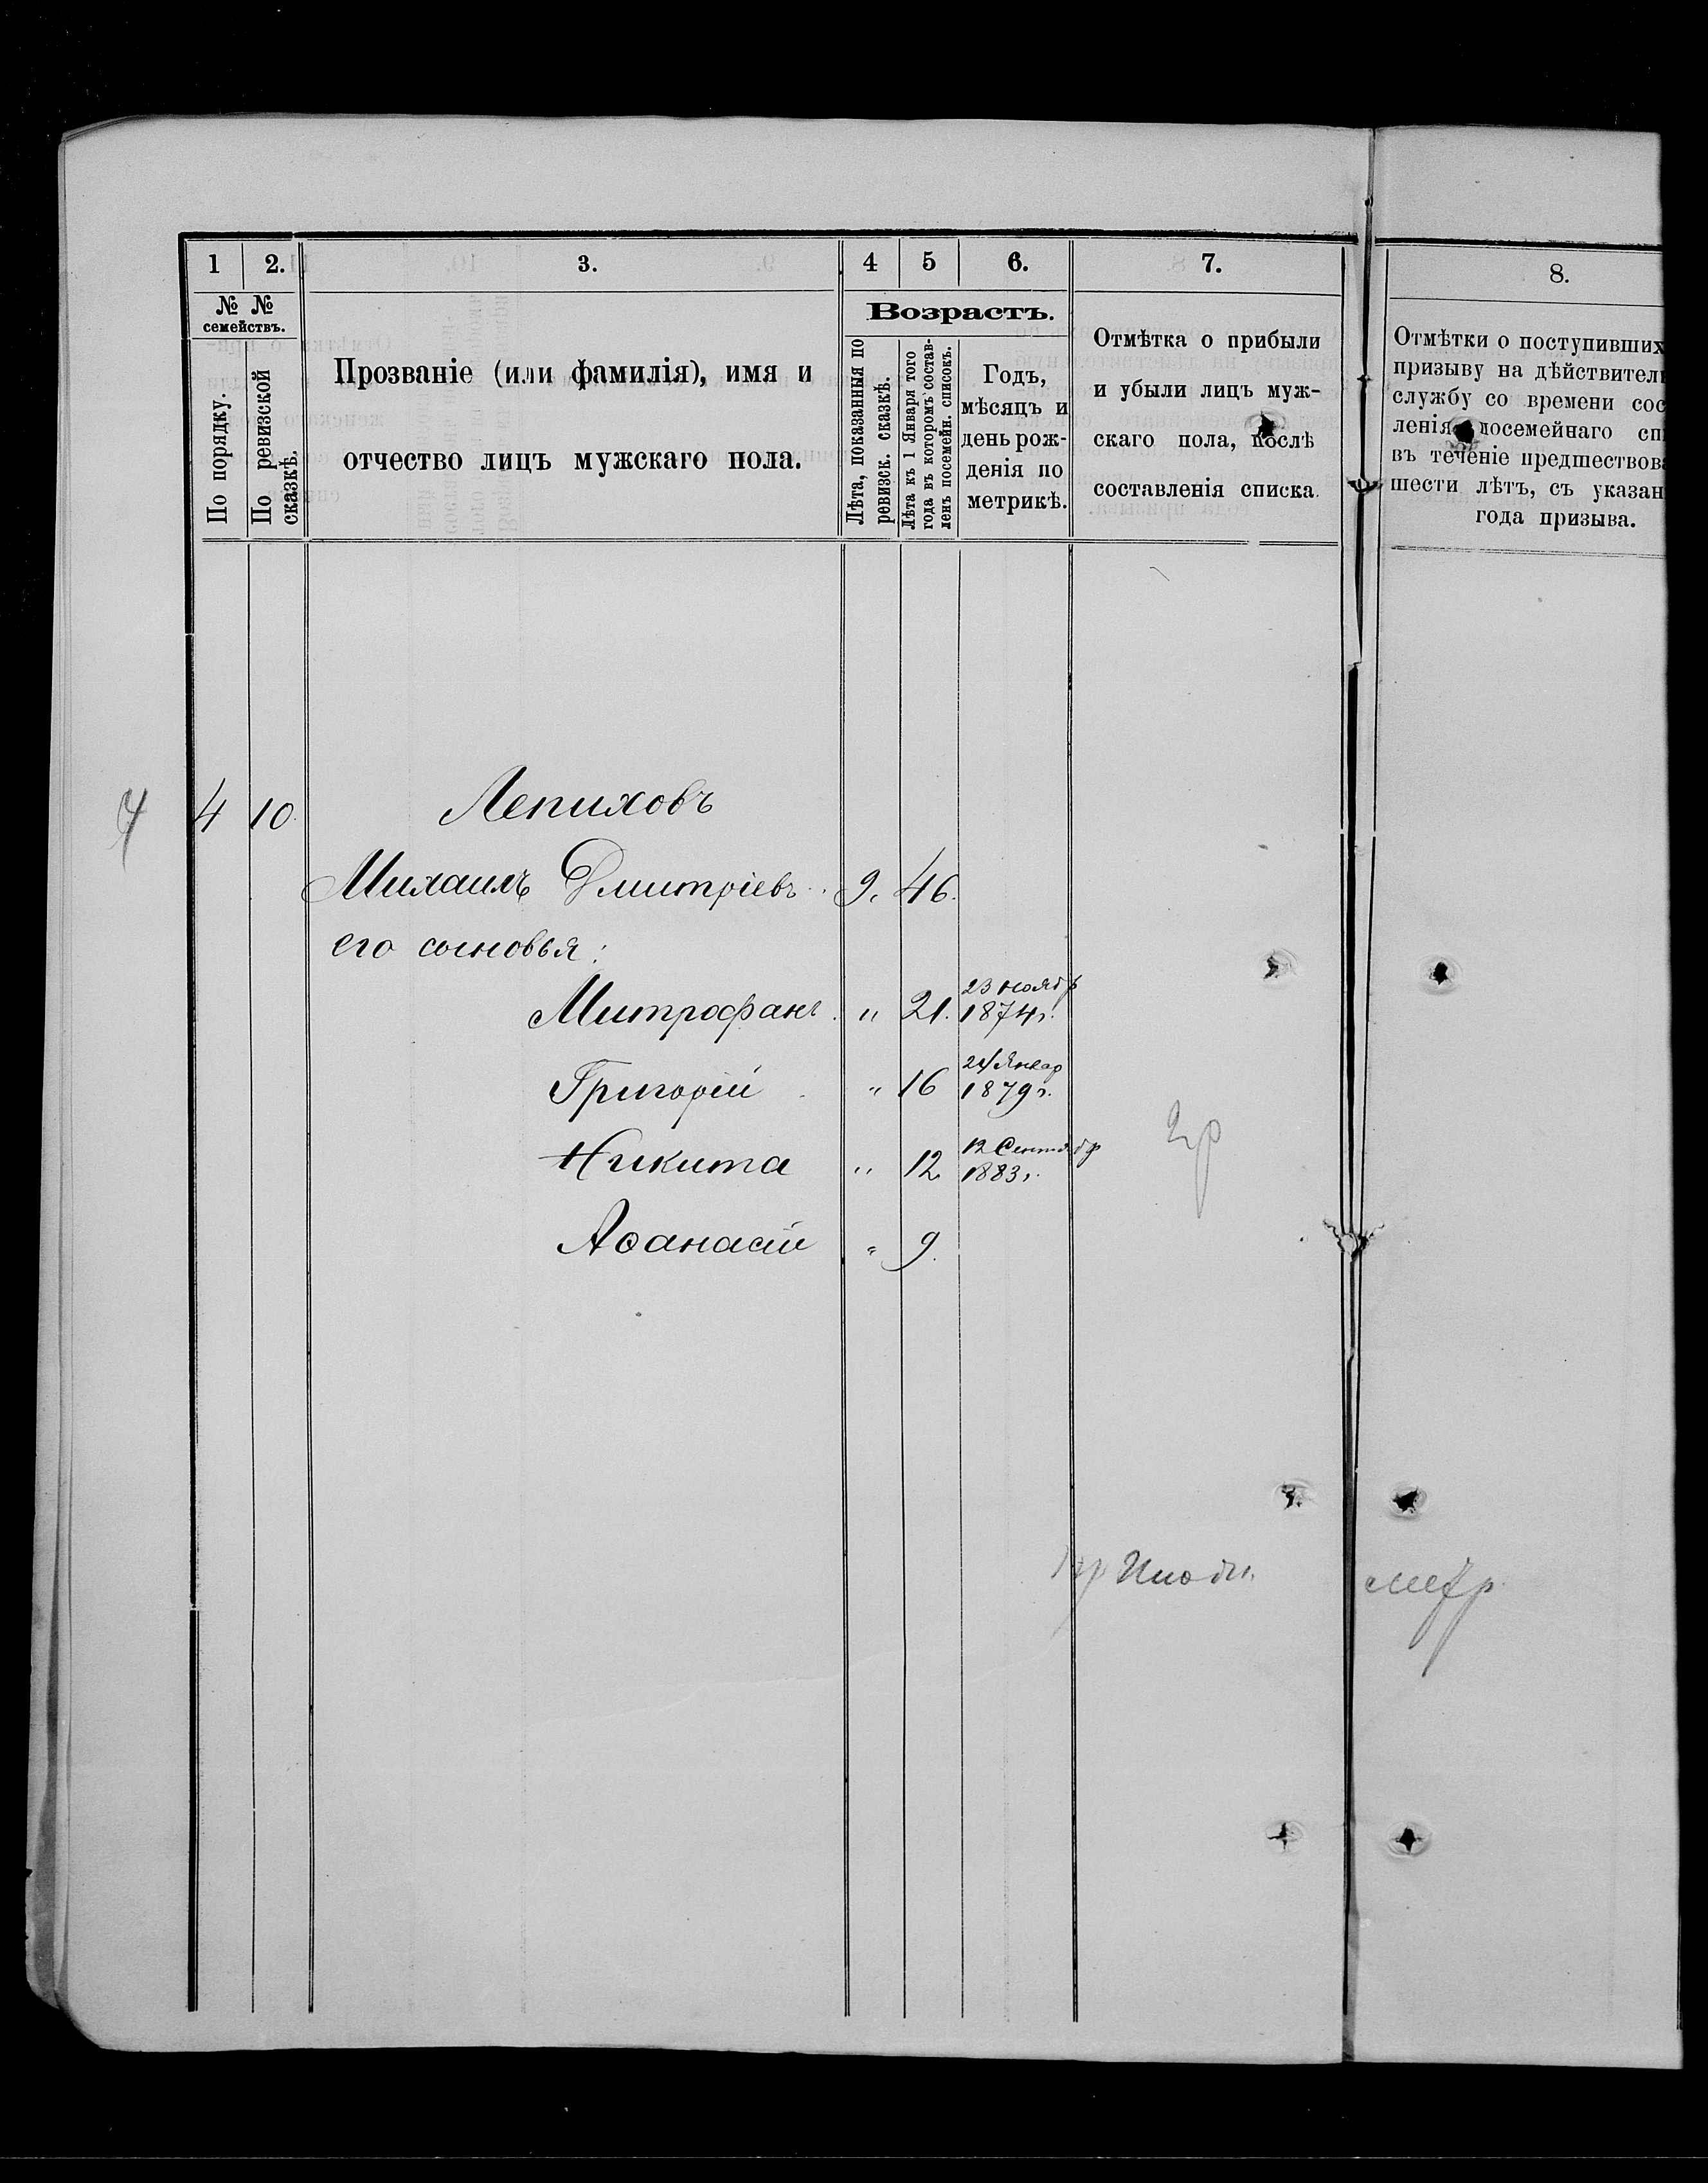 1 2. 3. 4 5 6. 7. 8.
№ № семействъ.
По порядку.
По ревизской сказкѣ.
Прозваніе (или фамилія), имя и
отчество лицъ мужскаго пола.
Возрастъ.
Лѣта, показанныя по
ревизск. сказкѣ.
Лѣта къ 1 Января того
года въ которомъ состав-
ленъ посемейн. списокъ.
Годъ,
мѣсяцъ и
день рож-
денія по
метрикѣ.
Отмѣтка о прибыли
и убыли лицъ муж-
скаго пола, послѣ
составленія списка.
Отмѣтки о поступивших
призыву на дѣйствител
службу со времени сос
ленія посемейнаго сп
въ теченіе предшествов
шести лѣтъ, съ указан
года призыва.
4 4 10. Лепиховъ
Михаилъ Дмитріевъ 9. 46.
его сыновья:
Митрофанъ " 21. 23 ноябр 1874 г.
Григорій " 16 24 Январ 1879 г.
Никита " 12 12 Сентябр 1883 г.
Аѳанасій " 9.